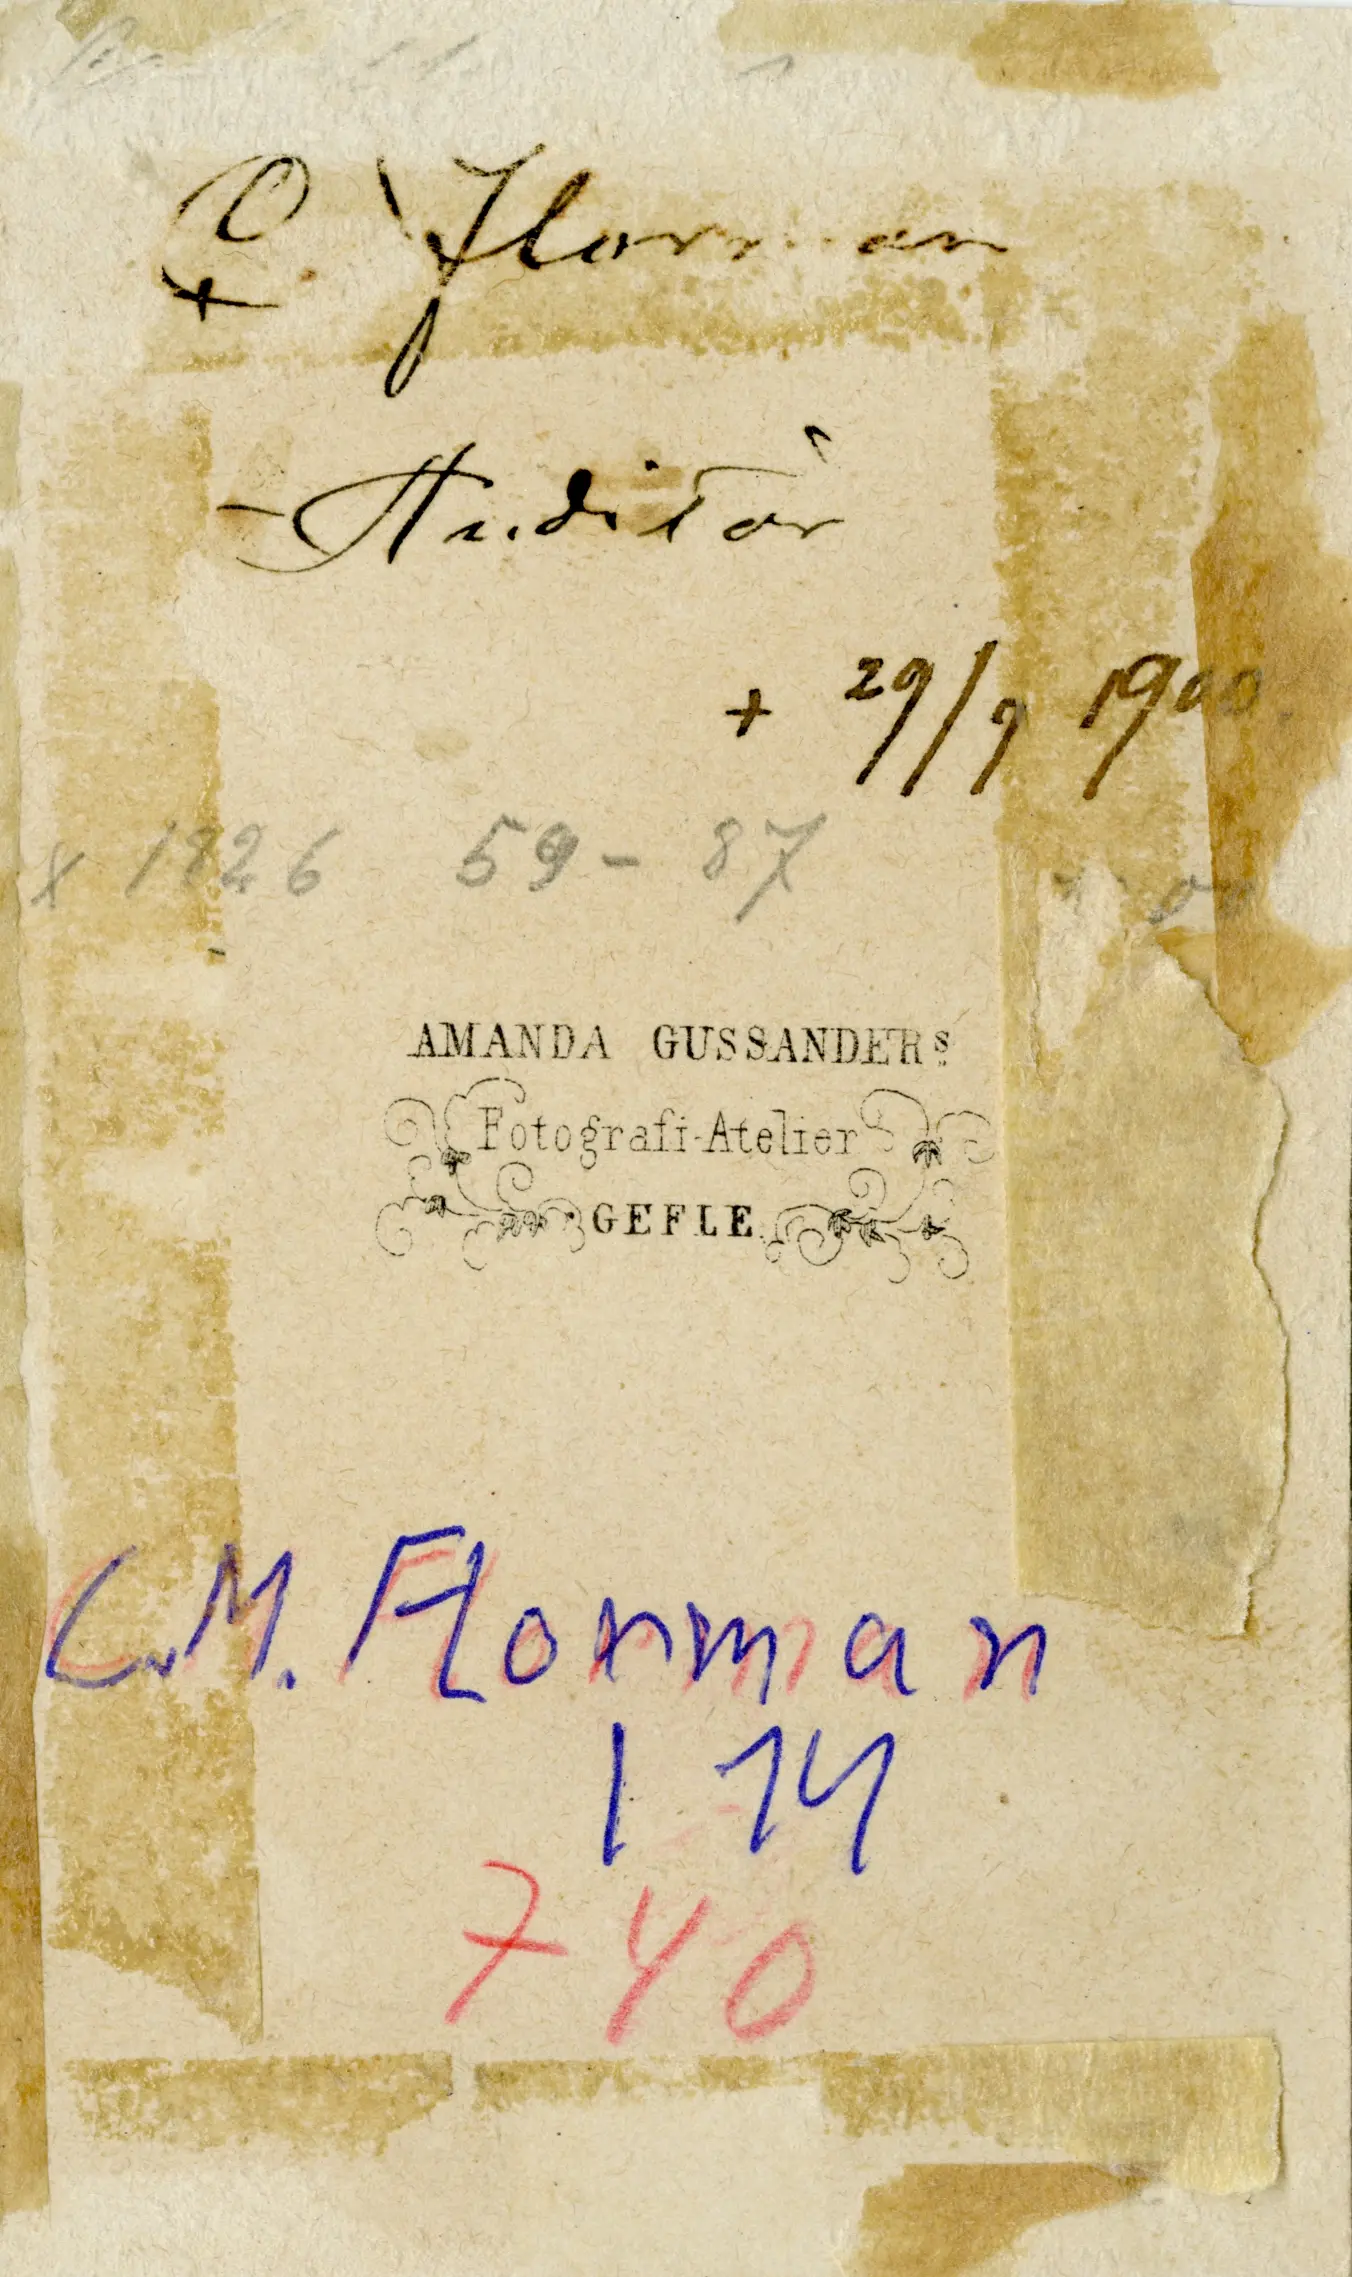 C. Florman
Auditör
+ 29/9 1900.
x 1826 59-87
AMANDA GUSSANDERS
Fotografi-Atelier
GEFLE
C.M. Florman
174
740